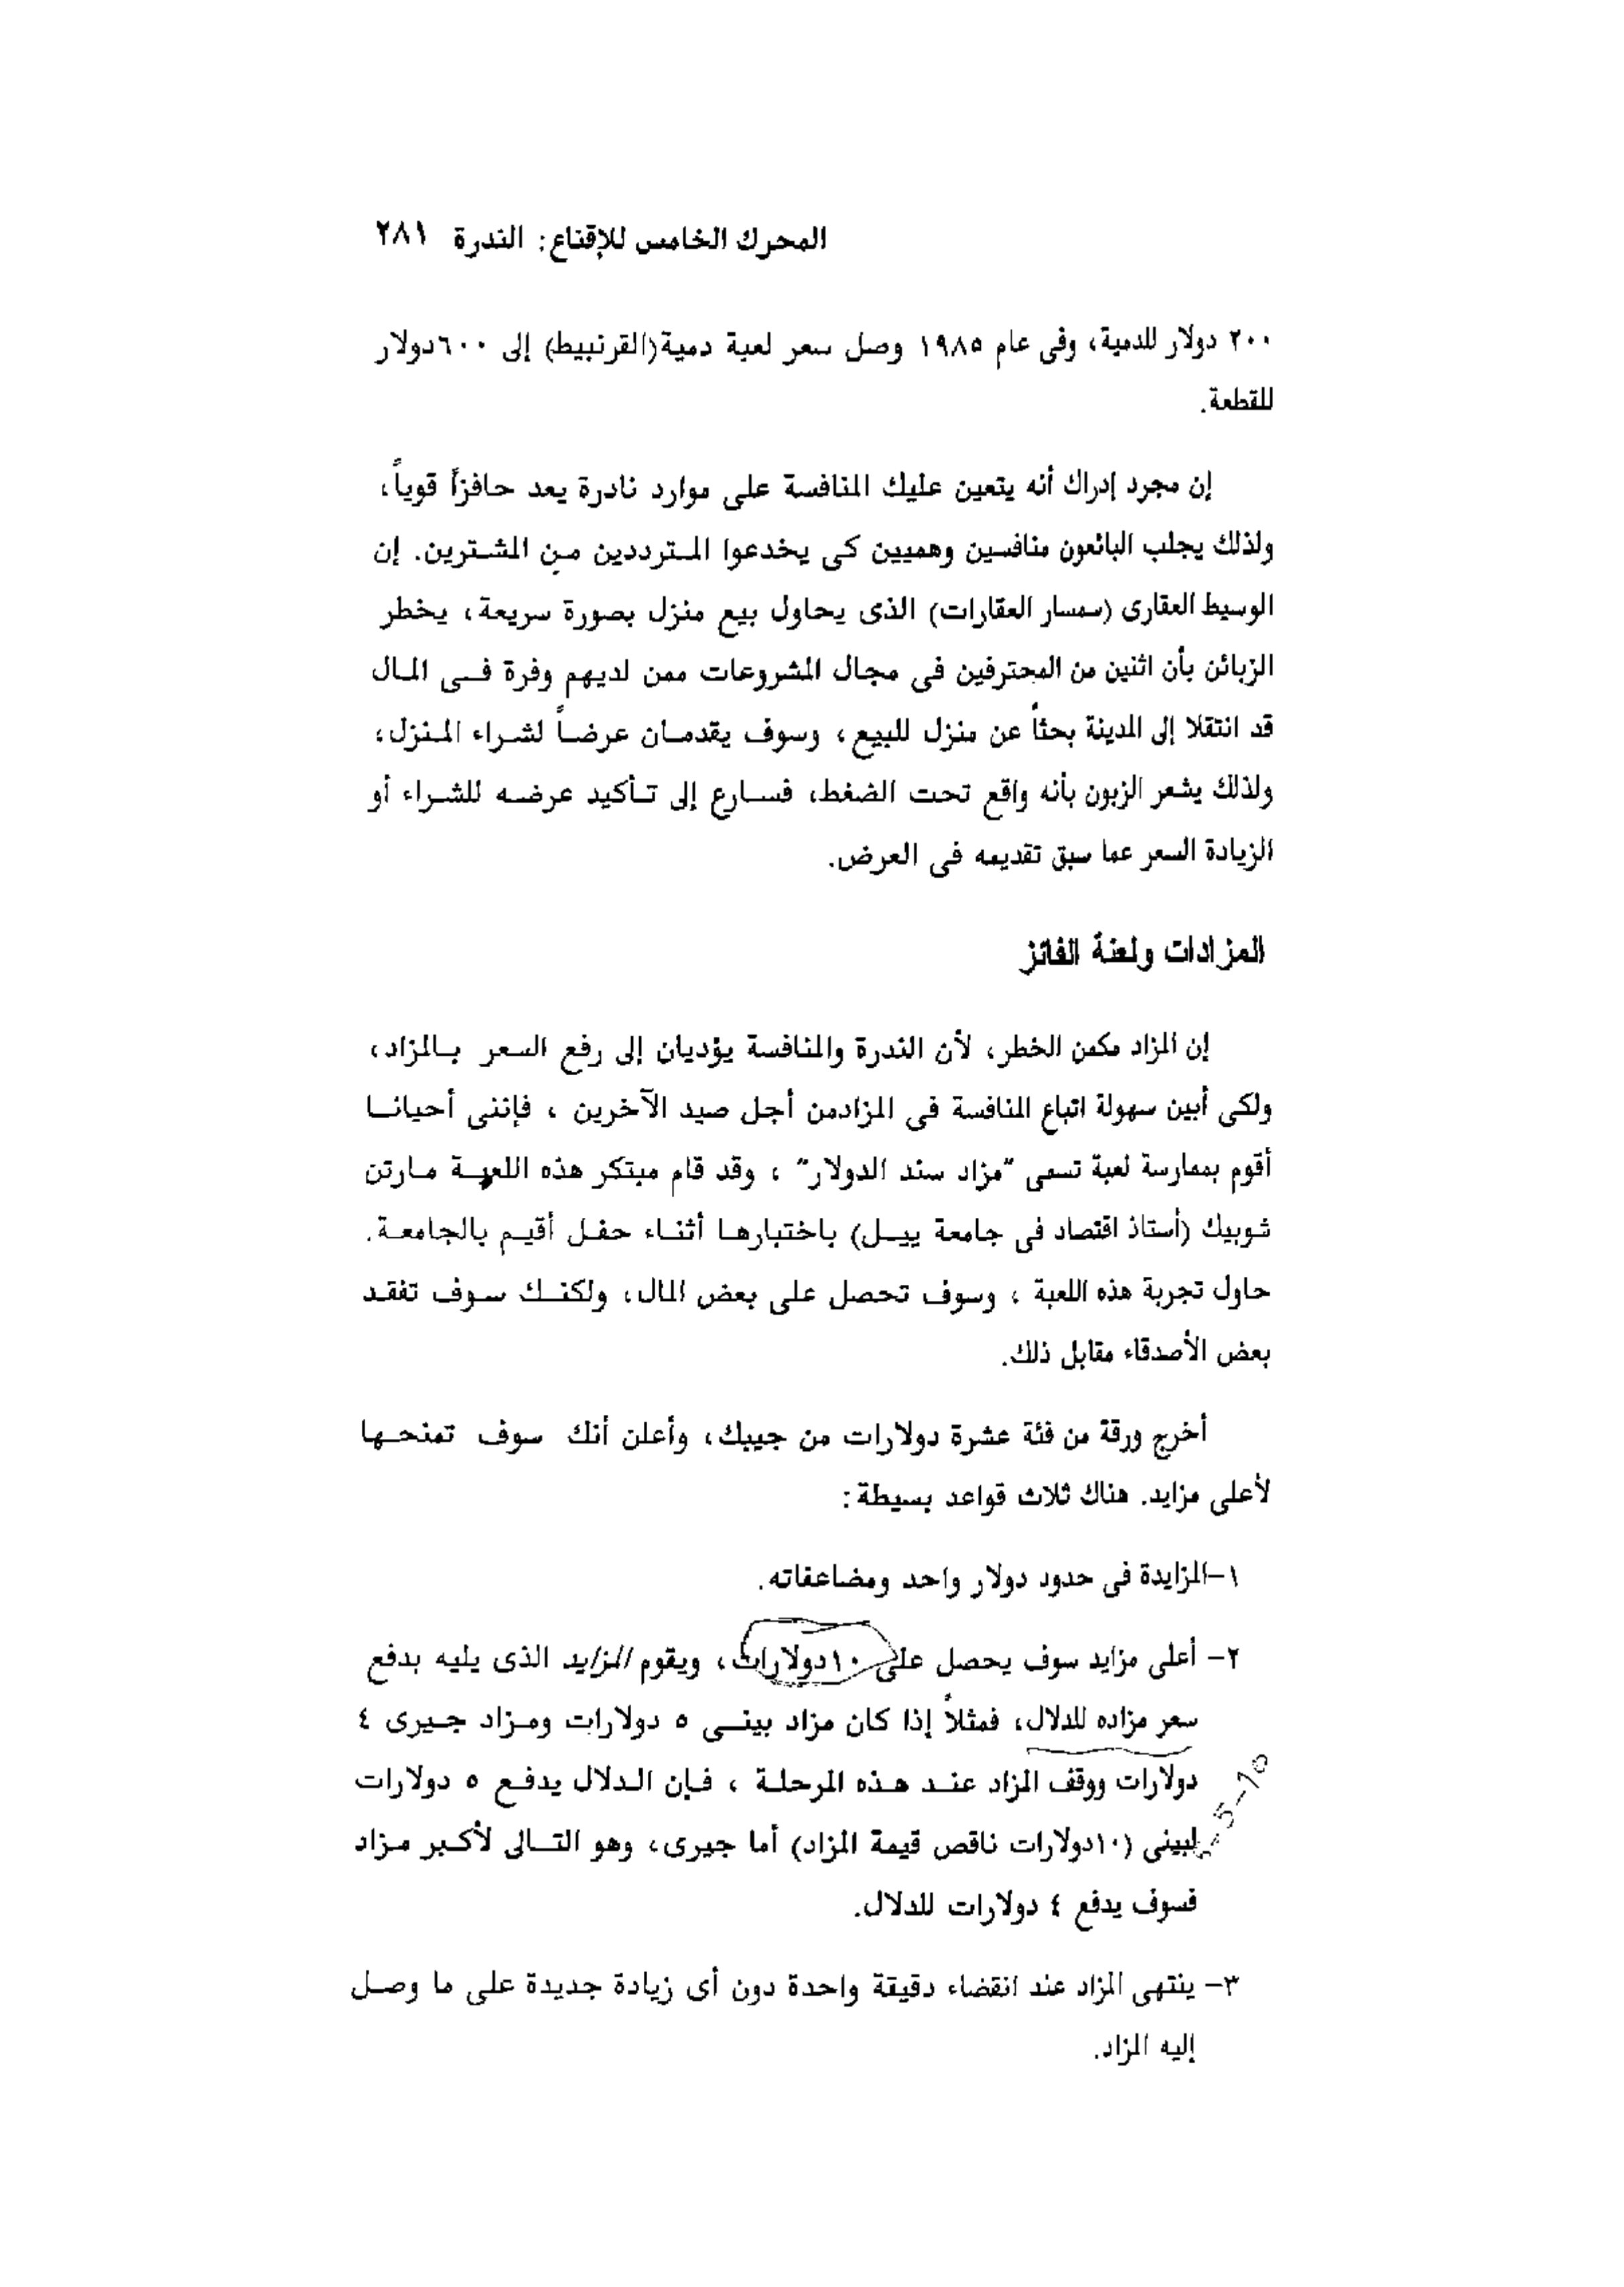 المحرك الخامس للإقناع: الندرة ٢٨١
٢٠٠ دولار للدمية، وفى عام ١٩٨٥ وصل سعر لعبة دمية(القرنبيط) إلى ٦٠٠دولار
للقطعة.
إن مجرد إدراك أنه يتعين عليك المنافسة على موارد نادرة يعد حافزاً قوياً،
ولذلك يجلب البائعون منافسين وهميين كى يخدعوا المترددين من المشترين. إن
الوسيط العقارى (سمسار العقارات) الذى يحاول بيع منزل بصورة سريعة، يخطر
الزبائن بأن اثنين من المحترفين فى مجال المشروعات ممن لديهم وفرة فى المال
قد انتقلا إلى المدينة بحثاً عن منزل للبيع، وسوف يقدمان عرضاً لشراء المنزل،
ولذلك يشعر الزبون بأنه واقع تحت الضغط، فسارع إلى تأكيد عرضه للشراء أو
الزيادة السعر عما سبق تقديمه فى العرض.
المزادات ولعنة الفائز
إن المزاد مكمن الخطر، لأن الندرة والمنافسة يؤديان إلى رفع السعر بالمزاد،
ولكى أبين سهولة اتباع المنافسة فى المزادمن أجل صيد الآخرين ، فإننى أحيانا
أقوم بممارسة لعبة تسمى "مزاد سند الدولار" ، وقد قام مبتكر هذه اللعبة مارتن
شوبيك (أستاذ اقتصاد فى جامعة ييل) باختبارها أثناء حفل أقيم بالجامعة.
حاول تجربة هذه اللعبة ، وسوف تحصل على بعض المال، ولكنك سوف تفقد
بعض الأصدقاء مقابل ذلك.
أخرج ورقة من فئة عشرة دولارات من جيبك، وأعلن أنك سوف تمنحها
لأعلى مزايد. هناك ثلاث قواعد بسيطة:
١-المزايدة فى حدود دولار واحد ومضاعفاته.
٢- أعلى مزايد سوف يحصل على ١٠دولارات، ويقوم المزايد الذى يليه بدفع
سعر مزاده للدلال، فمثلاً إذا كان مزاد بينى ٥ دولارات ومزاد جيرى ٤
دولارات ووقف المزاد عند هذه المرحلة ، فإن الدلال يدفع ٥ دولارات
لبينى (١٠دولارات ناقص قيمة المزاد) أما جيرى، وهو التالى لأكبر مزاد
فسوف يدفع ٤ دولارات للدلال.
٣- ينتهى المزاد عند انقضاء دقيقة واحدة دون أى زيادة جديدة على ما وصل
إليه المزاد.